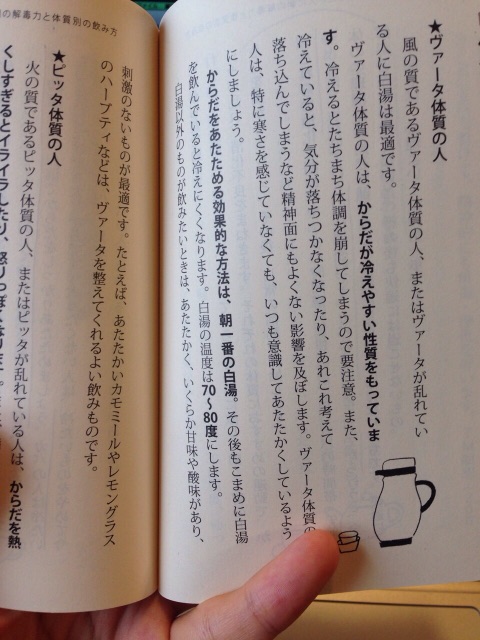 ★ヴァータ体質の人
風の質であるヴァータ体質の人、またはヴァータが乱れてい
る人に白湯は最適です。
ヴァータ体質の人は、からだが冷えやすい性質をもっていま
す。冷えるとたちまち体調を崩してしまうので要注意。また、
冷えていると、気分が落ちつかなくなったり、あれこれ考えて
落ち込んでしまうなど精神面にもよくない影響を及ぼします。ヴァータ体質の
人は、特に寒さを感じていなくても、いつも意識してあたたかくしているよう
にしましょう。
からだをあたためる効果的な方法は、朝一番の白湯。その後もこまめに白湯
を飲んでいると冷えにくくなります。白湯の温度は70〜80度にします。
白湯以外のものが飲みたいときは、あたたかく、いくらか甘味や酸味があり、
の解毒力と体質別の飲み方
刺激のないものが最適です。たとえば、あたたかいカモミールやレモングラス
のハーブティなどは、ヴァータを整えてくれるよい飲みものです。
★ピッタ体質の人
火の質であるピッタ体質の人、またはピッタが乱れている人は、からだを熱
くしすぎるとイライラしたり、怒りっぽくなります。